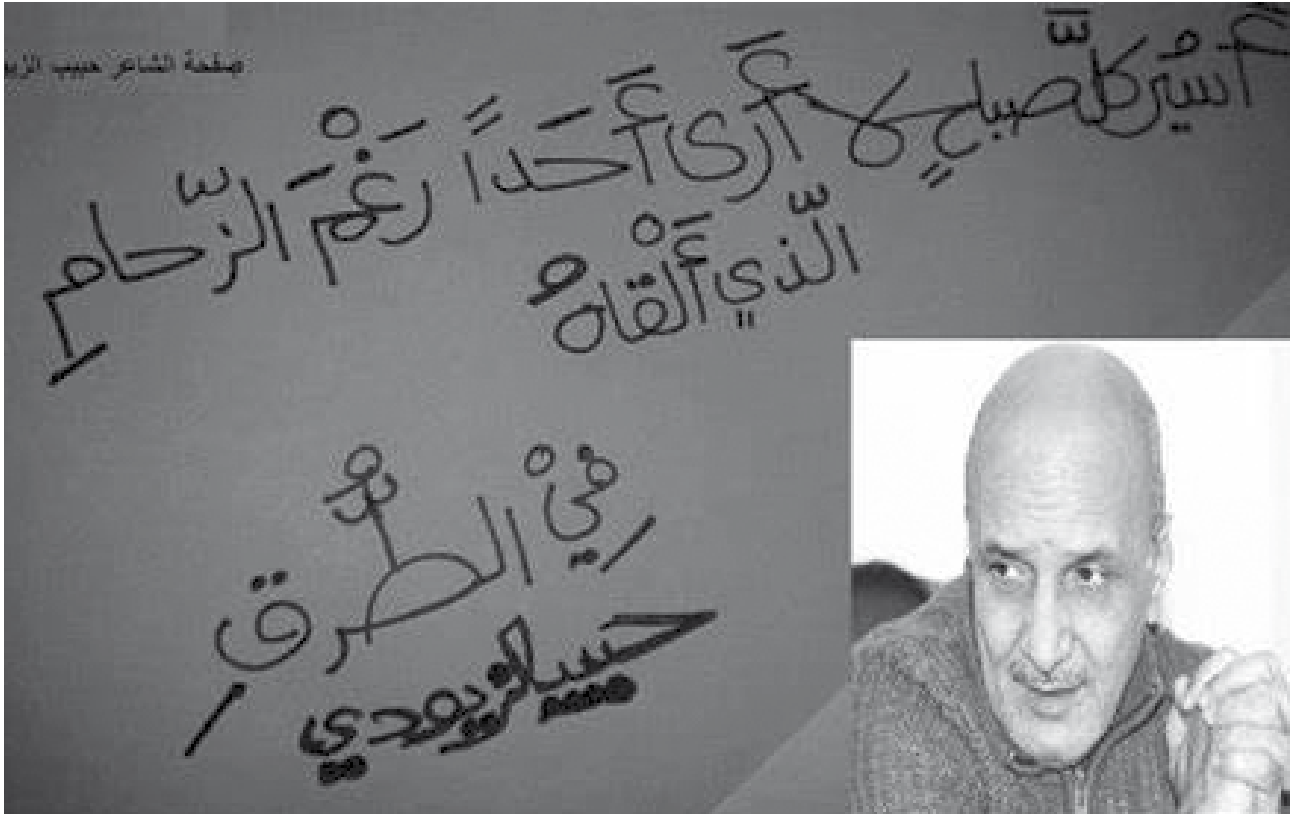 صفحة الشاعر حبيب الزيو
أَسيْر كلَّ صباحٍ لا أَرى أَحَداً رَغْمَ الزّحامِ
الّذي أَلْقاهُ
فِيْ الطُّرقِ
حبيب الزيودي